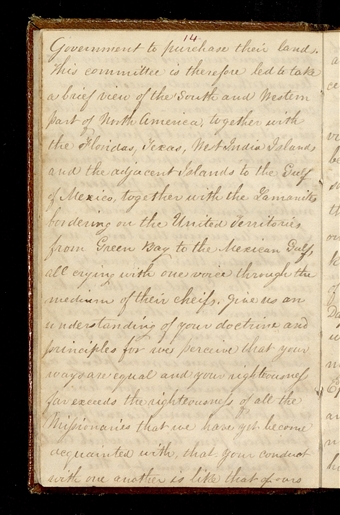 14
Government to purchase their lands.
This committee is therefore led to take
a brief view of the South and Western
part of North America, together with
the Floridas, Texas, West India Islands
and the adjacent Islands to the Gulf
of Mexico, together with the Lamanites
bordering on the United Territories
from Green Bay to the Mexican Gulf,
all crying with one voice through the
medium of their cheifs, give us an
understanding of your doctrine and
principles for we perceive that your
ways are equal and your righteousness
far exceeds the righteousness of all the
Missionaries that we have yet become
acquainted with, that your conduct
with one another is like that of ours